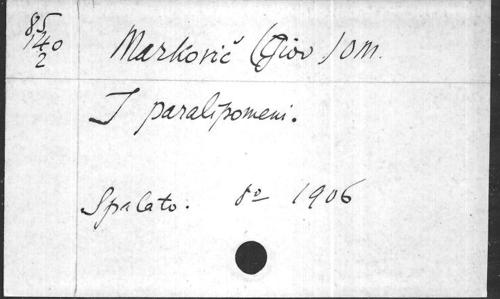 85
140
2
Marković (Giov) OM.
I paralipomeni.
Spalato. 8º 1906